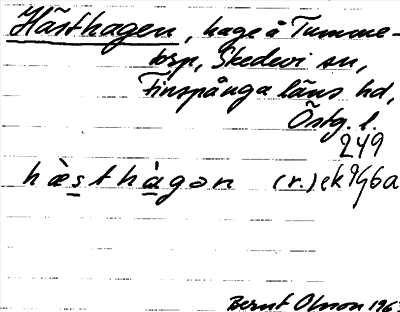 Hästhagen, hage å Tumme-
torp, Skedevi sn,
Finspånga läns hd,
Östg. l.
249
hæ̀sthàgən (r.) ek 9G6a
Bernt Olsson 196